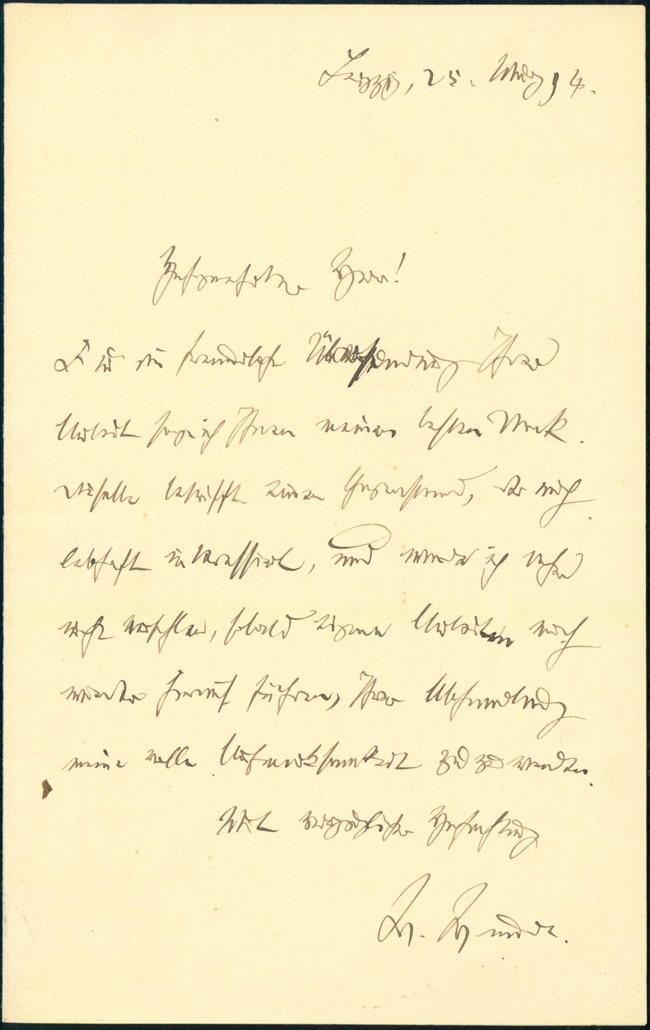 Leipzig, 25. März 94.
Hochgeehrter Herr!
Für die freundliche Übersendung Ihrer
Arbeit sage ich Ihnen meinen besten Dank.
Dieselbe betrifft einen Gegenstand, der mich
lebhaft interessirt, und werde ich daher
nicht verfehlen, sobald eigene Arbeiten mich
wieder hierauf führen, Ihrer Abhandlung
meine volle Aufmerksamkeit zuzuwenden.
Mit vorzüglicher Hochachtung
W. Wundt.